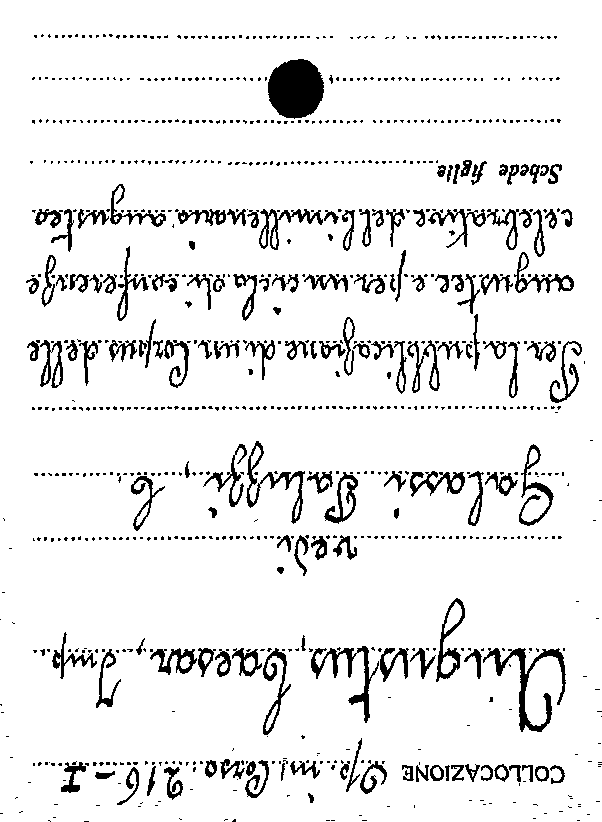 COLLOCAZIONE Op. in Corso. 216 - I
Augustus, Caesar, Imp.
vedi
Galassi Paluzzi, C.
Per la pubblicazione di un Corpus delle
augustee e per un ciclo di conferenze
celebrative del bimillenario augusteo
Schede figlie